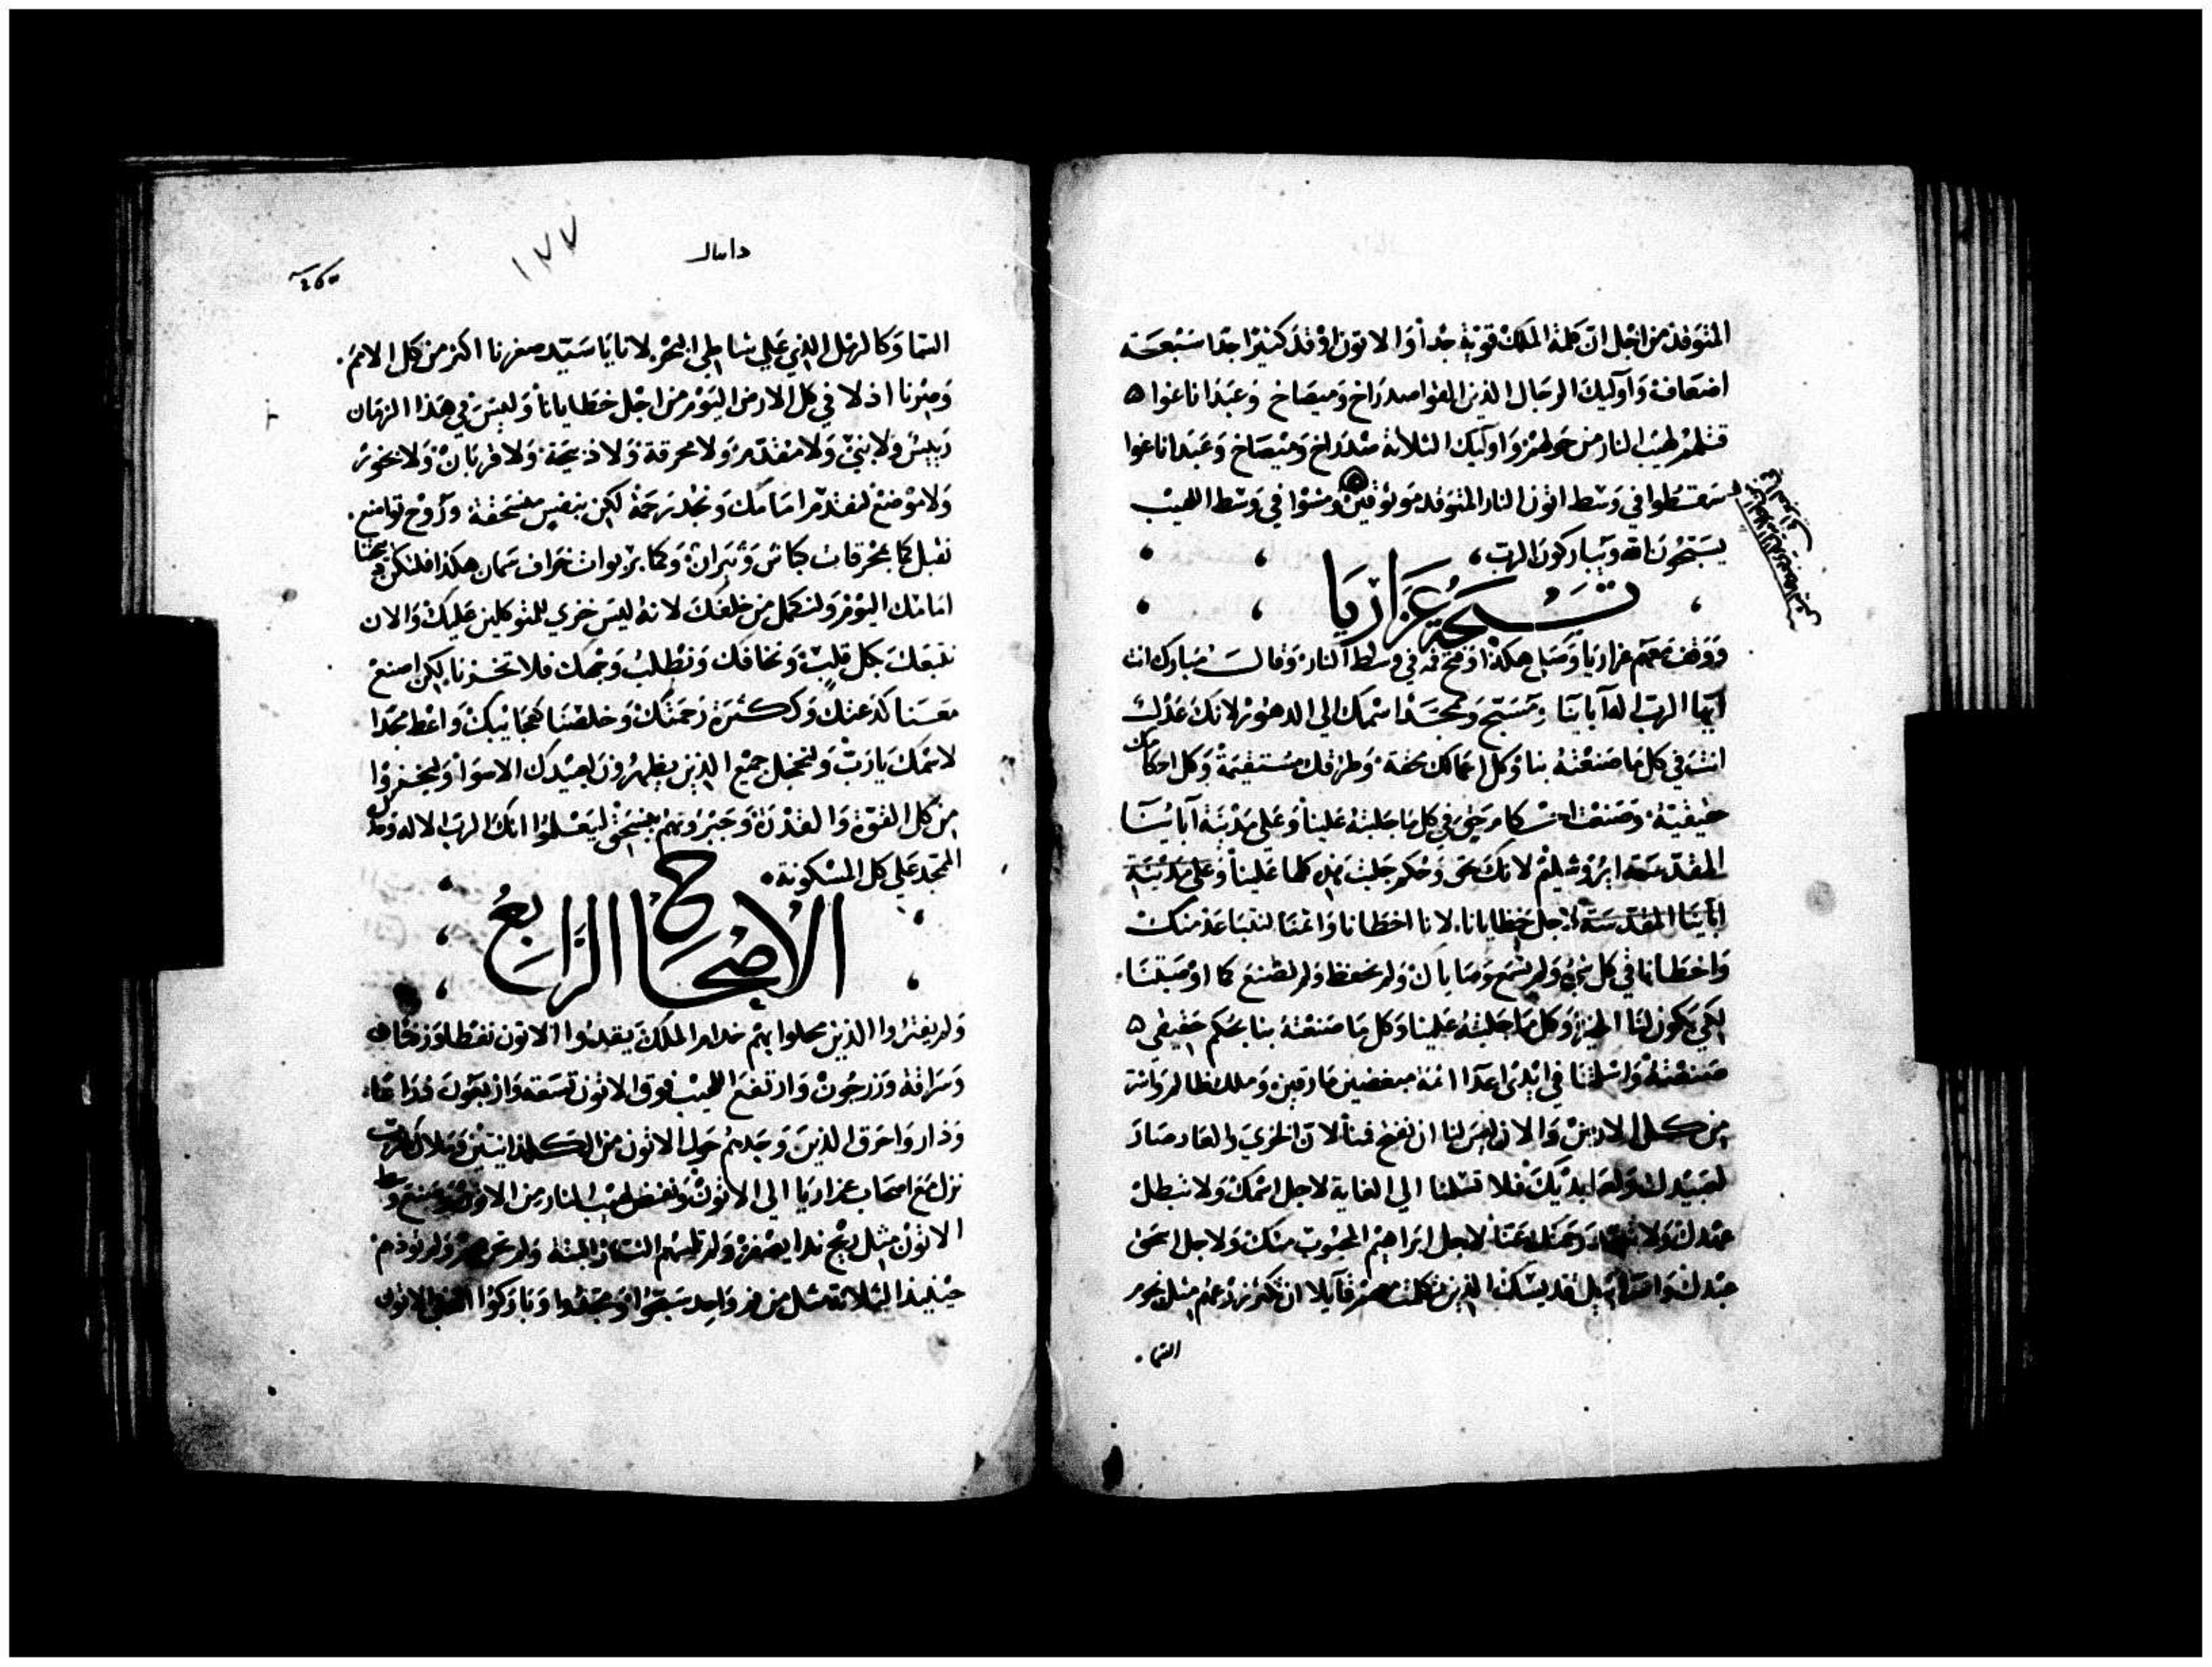 المتوقد من اجل ان كلمة الملك قوية جداً والاتون اوقد كثيرا جدا سبعة
اضعاف واوليك الرجال الذين القوا صدراخ وميصاخ وعبداناغوا
قتلهم لهيب النار من حولهم واوليك الثلاثة صدراخ وميصاخ وعبداناغوا
سقطوا في وسط اتون النار المتوقد موثوقين ومشوا في وسط اللهيب
يسبحون الله ويباركون الرب
تسبحة عزاريا
ووقف معهم عزاريا وصلى هكذا وفتح فه في وسط النار وقال مبارك انت
ايها الرب اله آباينا ومسبح وممجد اسمك الى الدهور لانك عدل
انت في كل ما صنعته بنا وكل اعمالك محقة وطرقك مستقيمة وكل احكامك
حقيقية وصنعت احكام حق في كل ما جلبته علينا وعلى مدينة آباينا
المقدسة ايروشليم لانك بحق وحكم جلبت هذه كلها علينا وعلى مدينة
اباينا المقدسة لاجل خطايانا لانا اخطانا واثمنا لنتباعد منك
واخطانا في كل شي ولم نسمع وصاياك ولم نحفظ ولم نصنع كما اوصيتنا
لكي يكون لنا الخير وكل ما جلبته علينا وكل ما صنعته بنا بحكم حقيقي
صنعته واسلمتنا في ايدي اعدا اثمة مبغضين مارقين وملك ظالم واشر
من كل الارض والان ليس لنا ان نفتح فمنا لان الخزي والعار صار
لعبيدك ولعابديك فلا تسلمنا الى الغاية لاجل اسمك ولا تبطل
عهدك ولا تبعد رحمتك عنا لاجل ابراهيم المحبوب منك ولاجل اسحق
عبدك واسرائيل قديسك الذين كلمتهم قايلا ان تكثر زرعهم مثل نجوم
السما
دانيال
١٧٧
السما وكالرمل الذي على شاطي البحر لانا يا سيد صغرنا اكثر من كل الامم
وصرنا اذلا في كل الارض اليوم من اجل خطايانا وليس في هذا الزمان
رييس ولا نبي ولا مقدم ولا محرقة ولا ذبيحة ولا قربان ولا بخور
ولا موضع لنقدم امامك ونجد رحمة لكن بنفس منسحقة وروح تواضع
نقبل كما بمحرقات كباش وثيران وكما بربوات خراف سمان هكذا فلتكن ذبيحتنا
امامك اليوم ولتكمل من خلفك لانه ليس خزي للمتوكلين عليك والان
نتبعك بكل قلب ونخافك ونطلب وجهك فلا تخزنا لكن اصنع
معنا كدعتك وككثرة رحمتك وخلصنا كعجايبك واعط مجدا
لاسمك يا رب ولنخجل جميع الذين يظهرون لعبيدك الاسوا وليخزوا
من كل القوة والقدرة وجبروتهم ينسحق ليعلموا انك الرب الاله وحدك
الممجد على كل المسكونة
الاصحاح الرابع
ولم يفتروا الذين حلوا بهم خدام الملك يوقدوا الاتون نفطا وزفتا
وسراقة وزرجون وارتفع اللهيب فوق الاتون تسعة واربعون ذراعا
ودار واحرق الذين وجدهم حول الاتون من الكلدانيين وملاك الرب
نزل مع اصحاب عزاريا الى الاتون ونفض لهيب النار من الاتون وصنع وسط
الاتون مثل ريح ندا يصفر ولم تلمسهم النار البتة ولم تحزنهم ولم تؤذهم
حينيذ الثلاثة مثل من فم واحد سبحوا ومجدوا وباركوا الله في الاتون